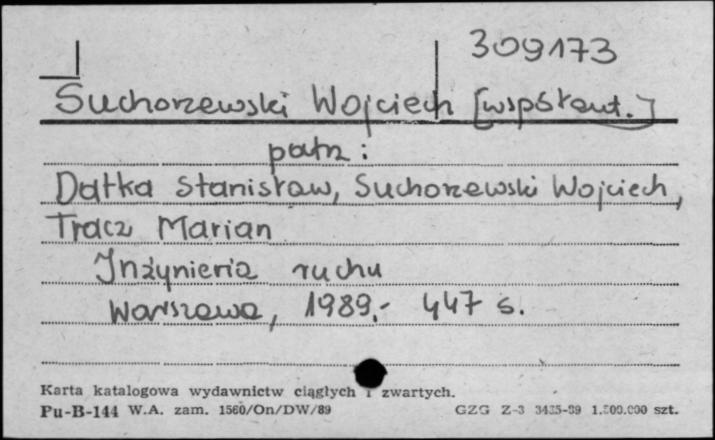 309173
Suchorzewski Wojciech [współaut.]
patrz:
Datka Stanisław, Suchorzewski Wojciech,
Tracz Marian
Inżynieria ruchu
Warszawa, 1989.- 447 s.
Karta katalogowa wydawnictw ciągłych i zwartych.
Pu-B-144 W.A. zam. 1560/On/DW/89 GZG Z-3 3435-89 1.500.000 szt.